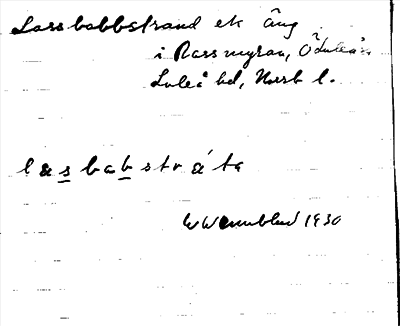 Lassbabbstrand ek äng
i Rassmyran, Ö Luleå sn
Luleå hd, Norrb l.
l a s b a b s t r á t a
W Wennblad 1930